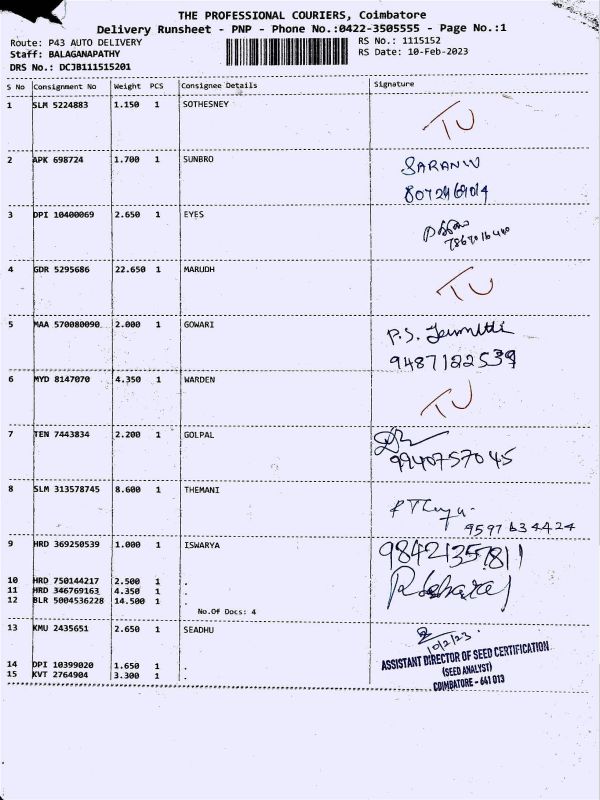 THE PROFESSIONAL COURIERS, Coimbatore
Delivery Runsheet - PNP - Phone No.:0422-3505555 - Page No.:1
Route: P43 AUTO DELIVERY RS No.: 1115152
Staff: BALAGANAPATHY RS Date: 10-Feb-2023
DRS No.: DCJB111515201
S No Consignment No Weight PCS Consignee Details Signature
1 SLM 5224883 1.150 1 SOTHESNEY TU
2 APK 698724 1.700 1 SUNBRO
3 DPI 10400069 2.650 1 EYES
4 GDR 5295686 22.650 1 MARUDH TU
5 MAA 570080090 2.000 1 GOWARI P.S.
9487182539
6 MYD 8147070 4.350 1 WARDEN TU
7 TEN 7443834 2.200 1 GOLPAL
9940757045
8 SLM 313578745 8.600 1 THEMANI
9597634424
9 HRD 369250539 1.000 1 ISWARYA
10 HRD 750144217 2.500 1 .
11 HRD 346769163 4.350 1 .
12 BLR 5004536228 14.500 1 .
No.Of Docs: 4
13 KMU 2435651 2.650 1 SEADHU
10/2/23.
ASSISTANT DIRECTOR OF SEED CERTIFICATION
(SEED ANALYST)
COIMBATORE - 641 013
14 DPI 10399020 1.650 1 .
15 KVT 2764904 3.300 1 .